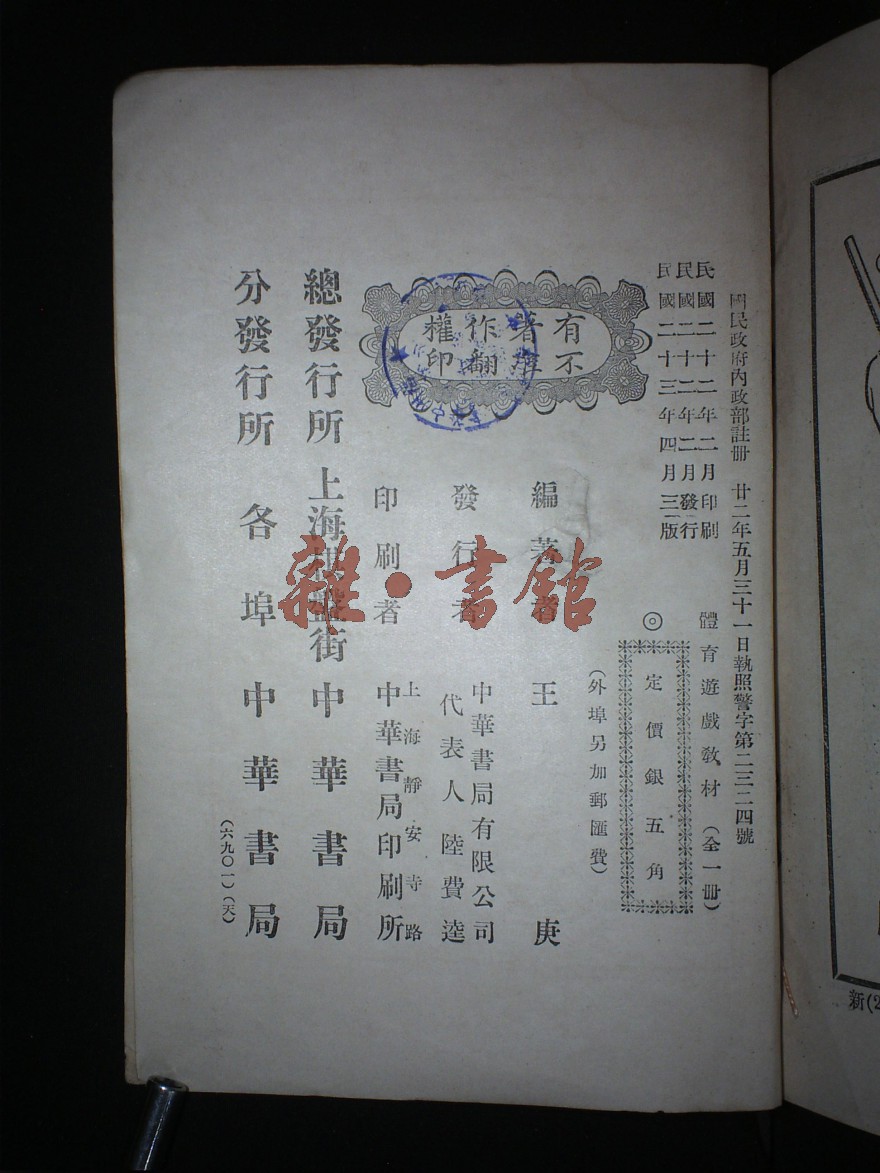 國民政府內政部註冊 廿二年五月三十一日執照警字第二三二四號
民國二十二年二月印刷
民國二十二年二月發行
民國二十三年四月三版
體育遊戲教材（全一冊）
◎定價銀五角
（外埠另加郵匯費）
有著作權
不准翻印
編著者 王庚
發行者 中華書局有限公司
代表人陸費逵
印刷者 上海靜安寺路
中華書局印刷所
總發行所 上海棋盤街 中華書局
分發行所 各埠 中華書局
（六九〇一）（天）
雜·書館
新(2